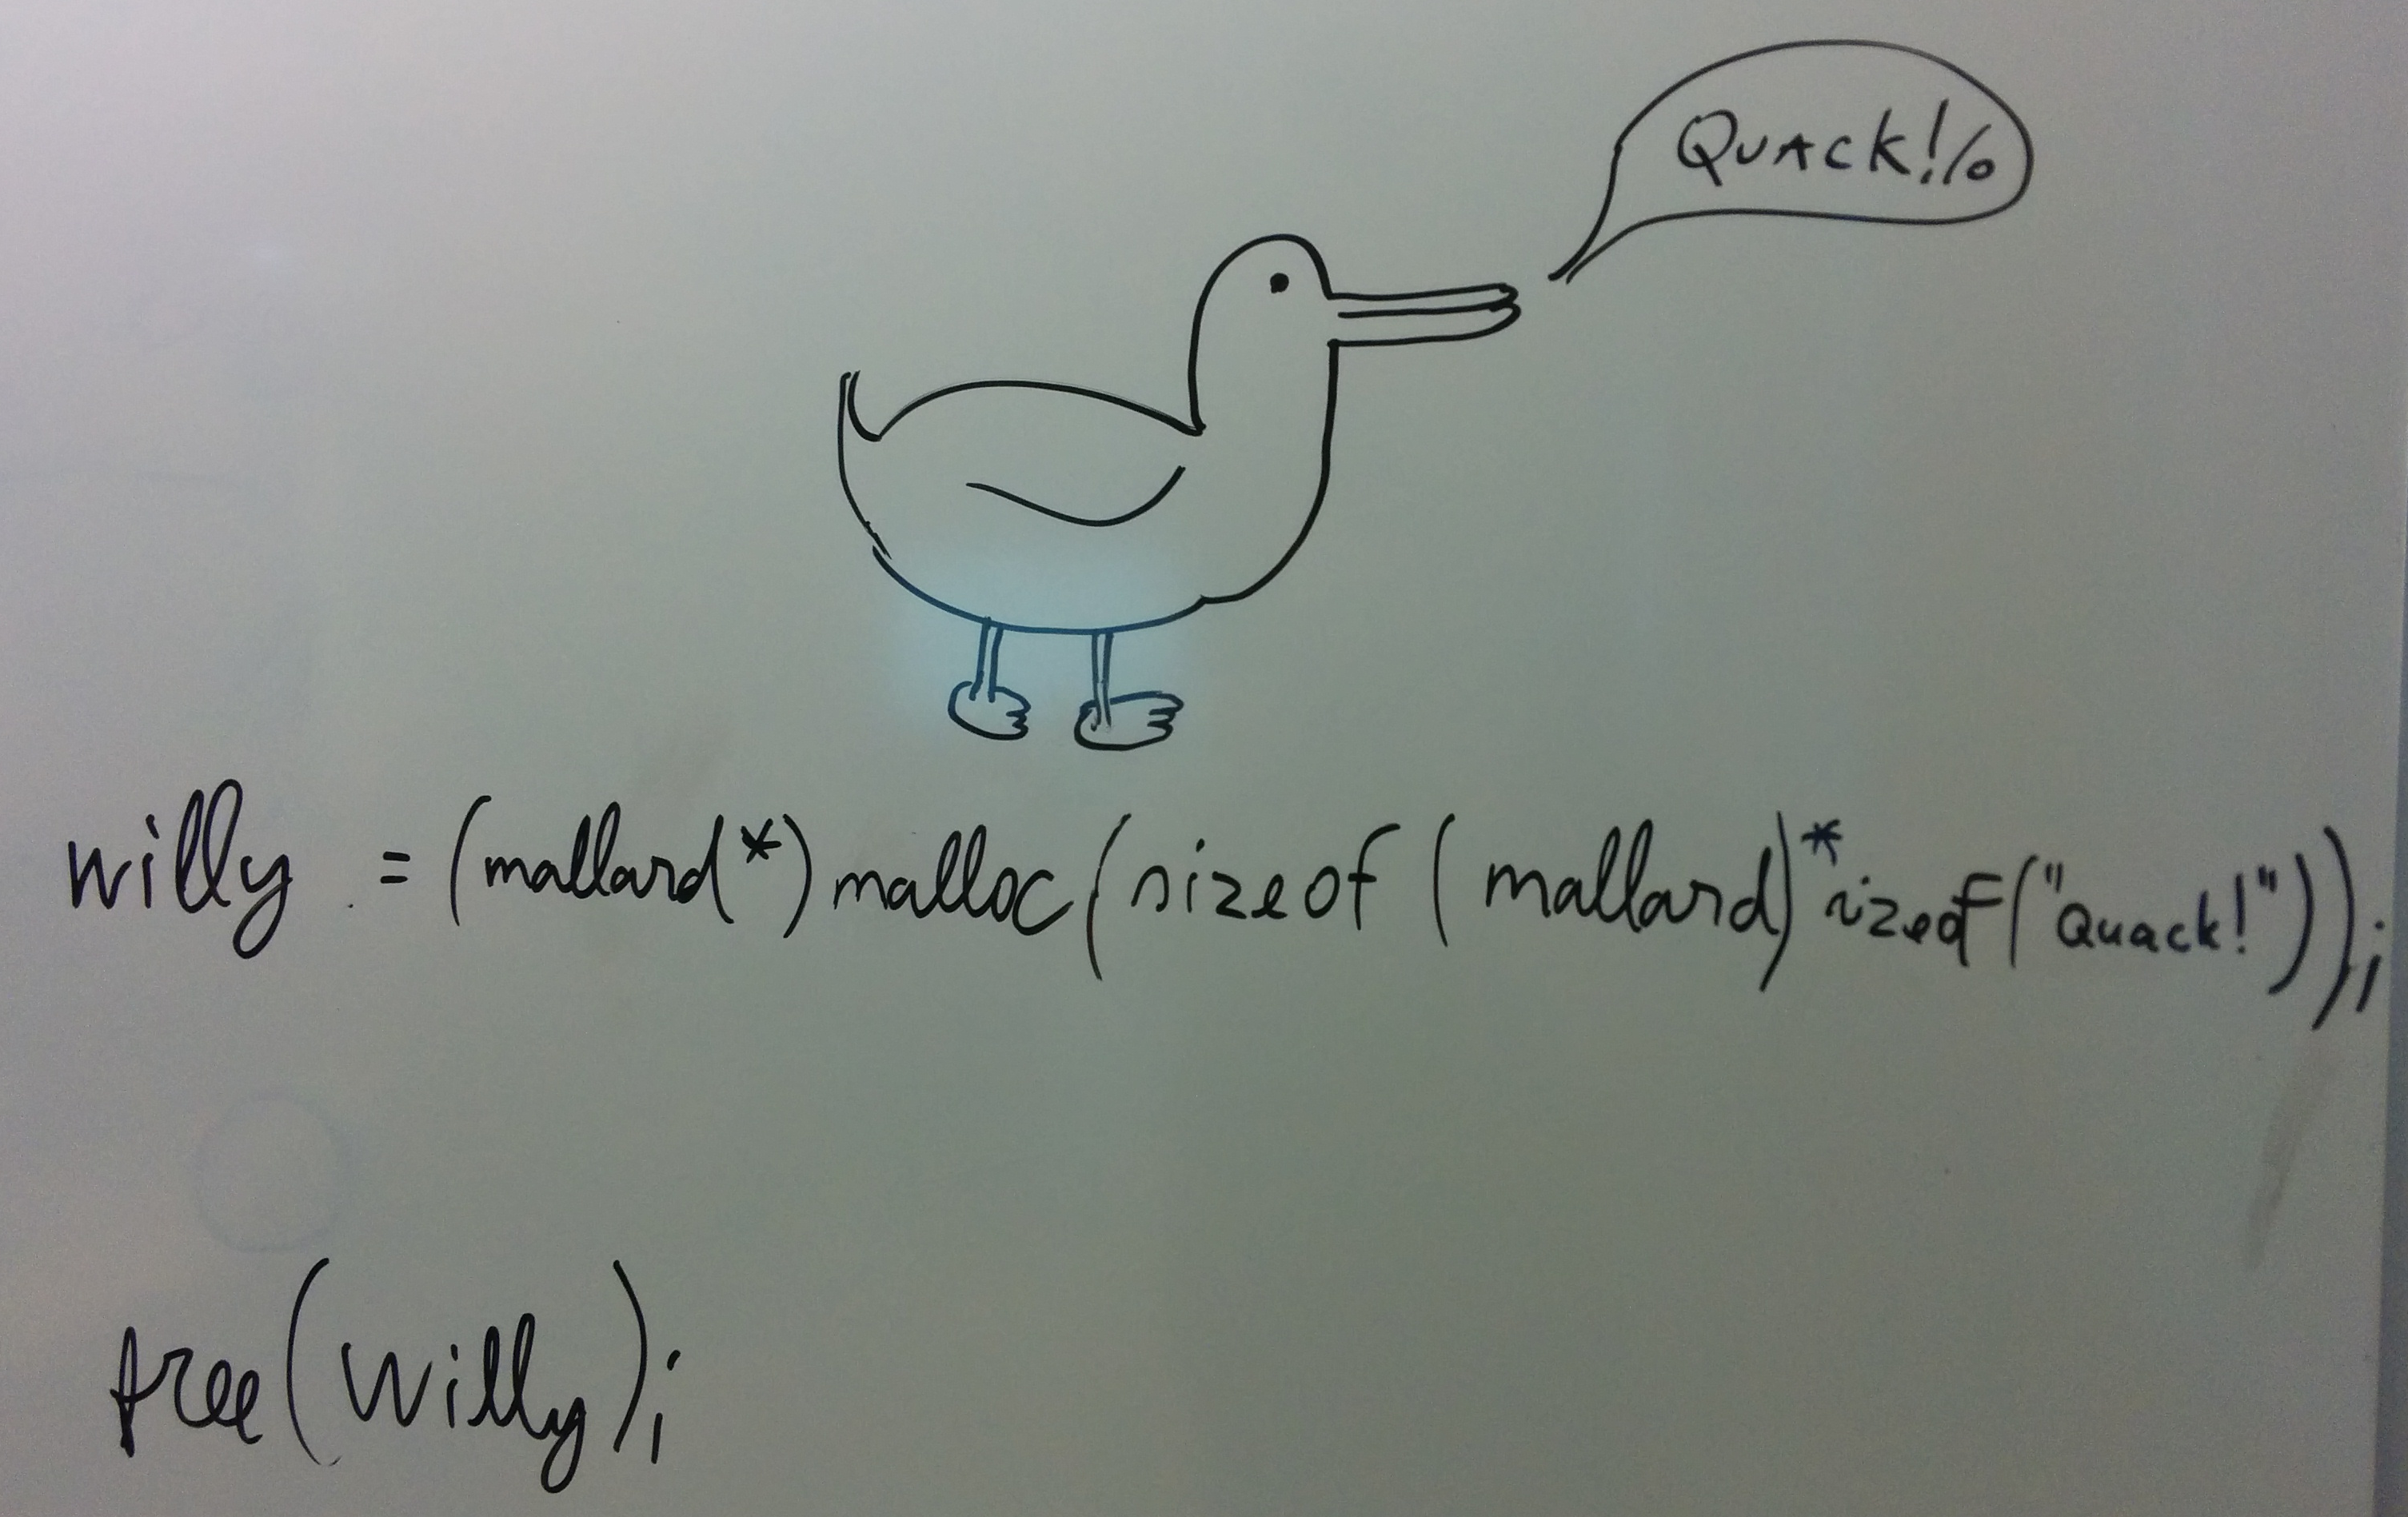 QUACK!/o
willy = (mallard*) malloc(sizeof (mallard)*sizeof("Quack!"));
free(willy);